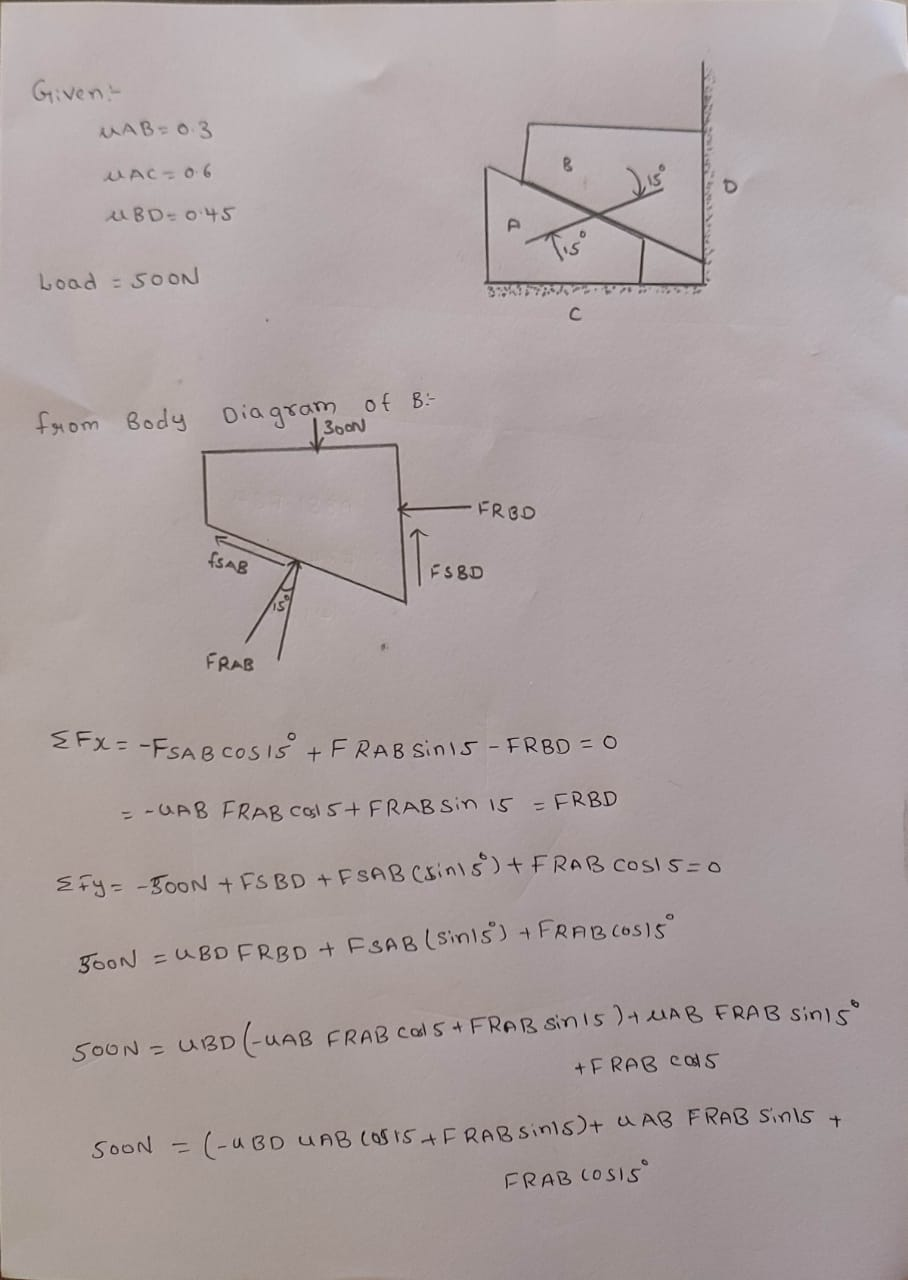 Given:-
μAB = 0.3
μAC = 0.6
μBD = 0.45
Load = 500N
B
15°
D
A
15°
C
from Body Diagram of B:-
300N
FRBD
fSAB
FSBD
15°
FRAB
ΣFx = -FSAB cos15° + FRAB sin15 - FRBD = 0
= -μAB FRAB cos15 + FRAB sin 15 = FRBD
ΣFy = -500N + FSBD + FSAB (sin15°) + FRAB cos15 = 0
500N = μBD FRBD + FSAB (sin15°) + FRAB cos15°
500N = μBD (-μAB FRAB cos15 + FRAB sin15) + μAB FRAB sin15°
+ FRAB cos15
500N = (-μBD μAB cos15 + FRAB sin15) + μAB FRAB sin15 +
FRAB cos15°